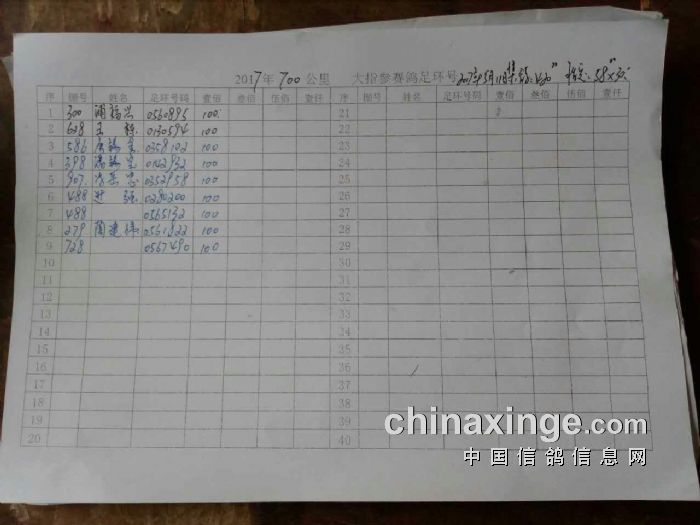 2017年 700公里 大指参赛鸽足环号
序 圈号 姓名 足环号码 壹佰 叁佰 伍佰 壹仟 序 圈号 姓名 足环号码 壹佰 叁佰 伍佰 壹仟
1 300 福兴 0560895 100 21
2 628 王 0130594 100 22
3 586 0358102 100 23
4 398 0142932 100 24
5 907 0352958 100 25
6 488 0280200 100 26
7 488 0565132 100 27
8 279 陶建伟 0561822 100 28
9 728 0567490 100 29
10 30
11 31
12 32
13 33
14 34
15 35
16 36
17 37
18 38
19 39
20 40
chinaxinge.com
中国信鸽信息网